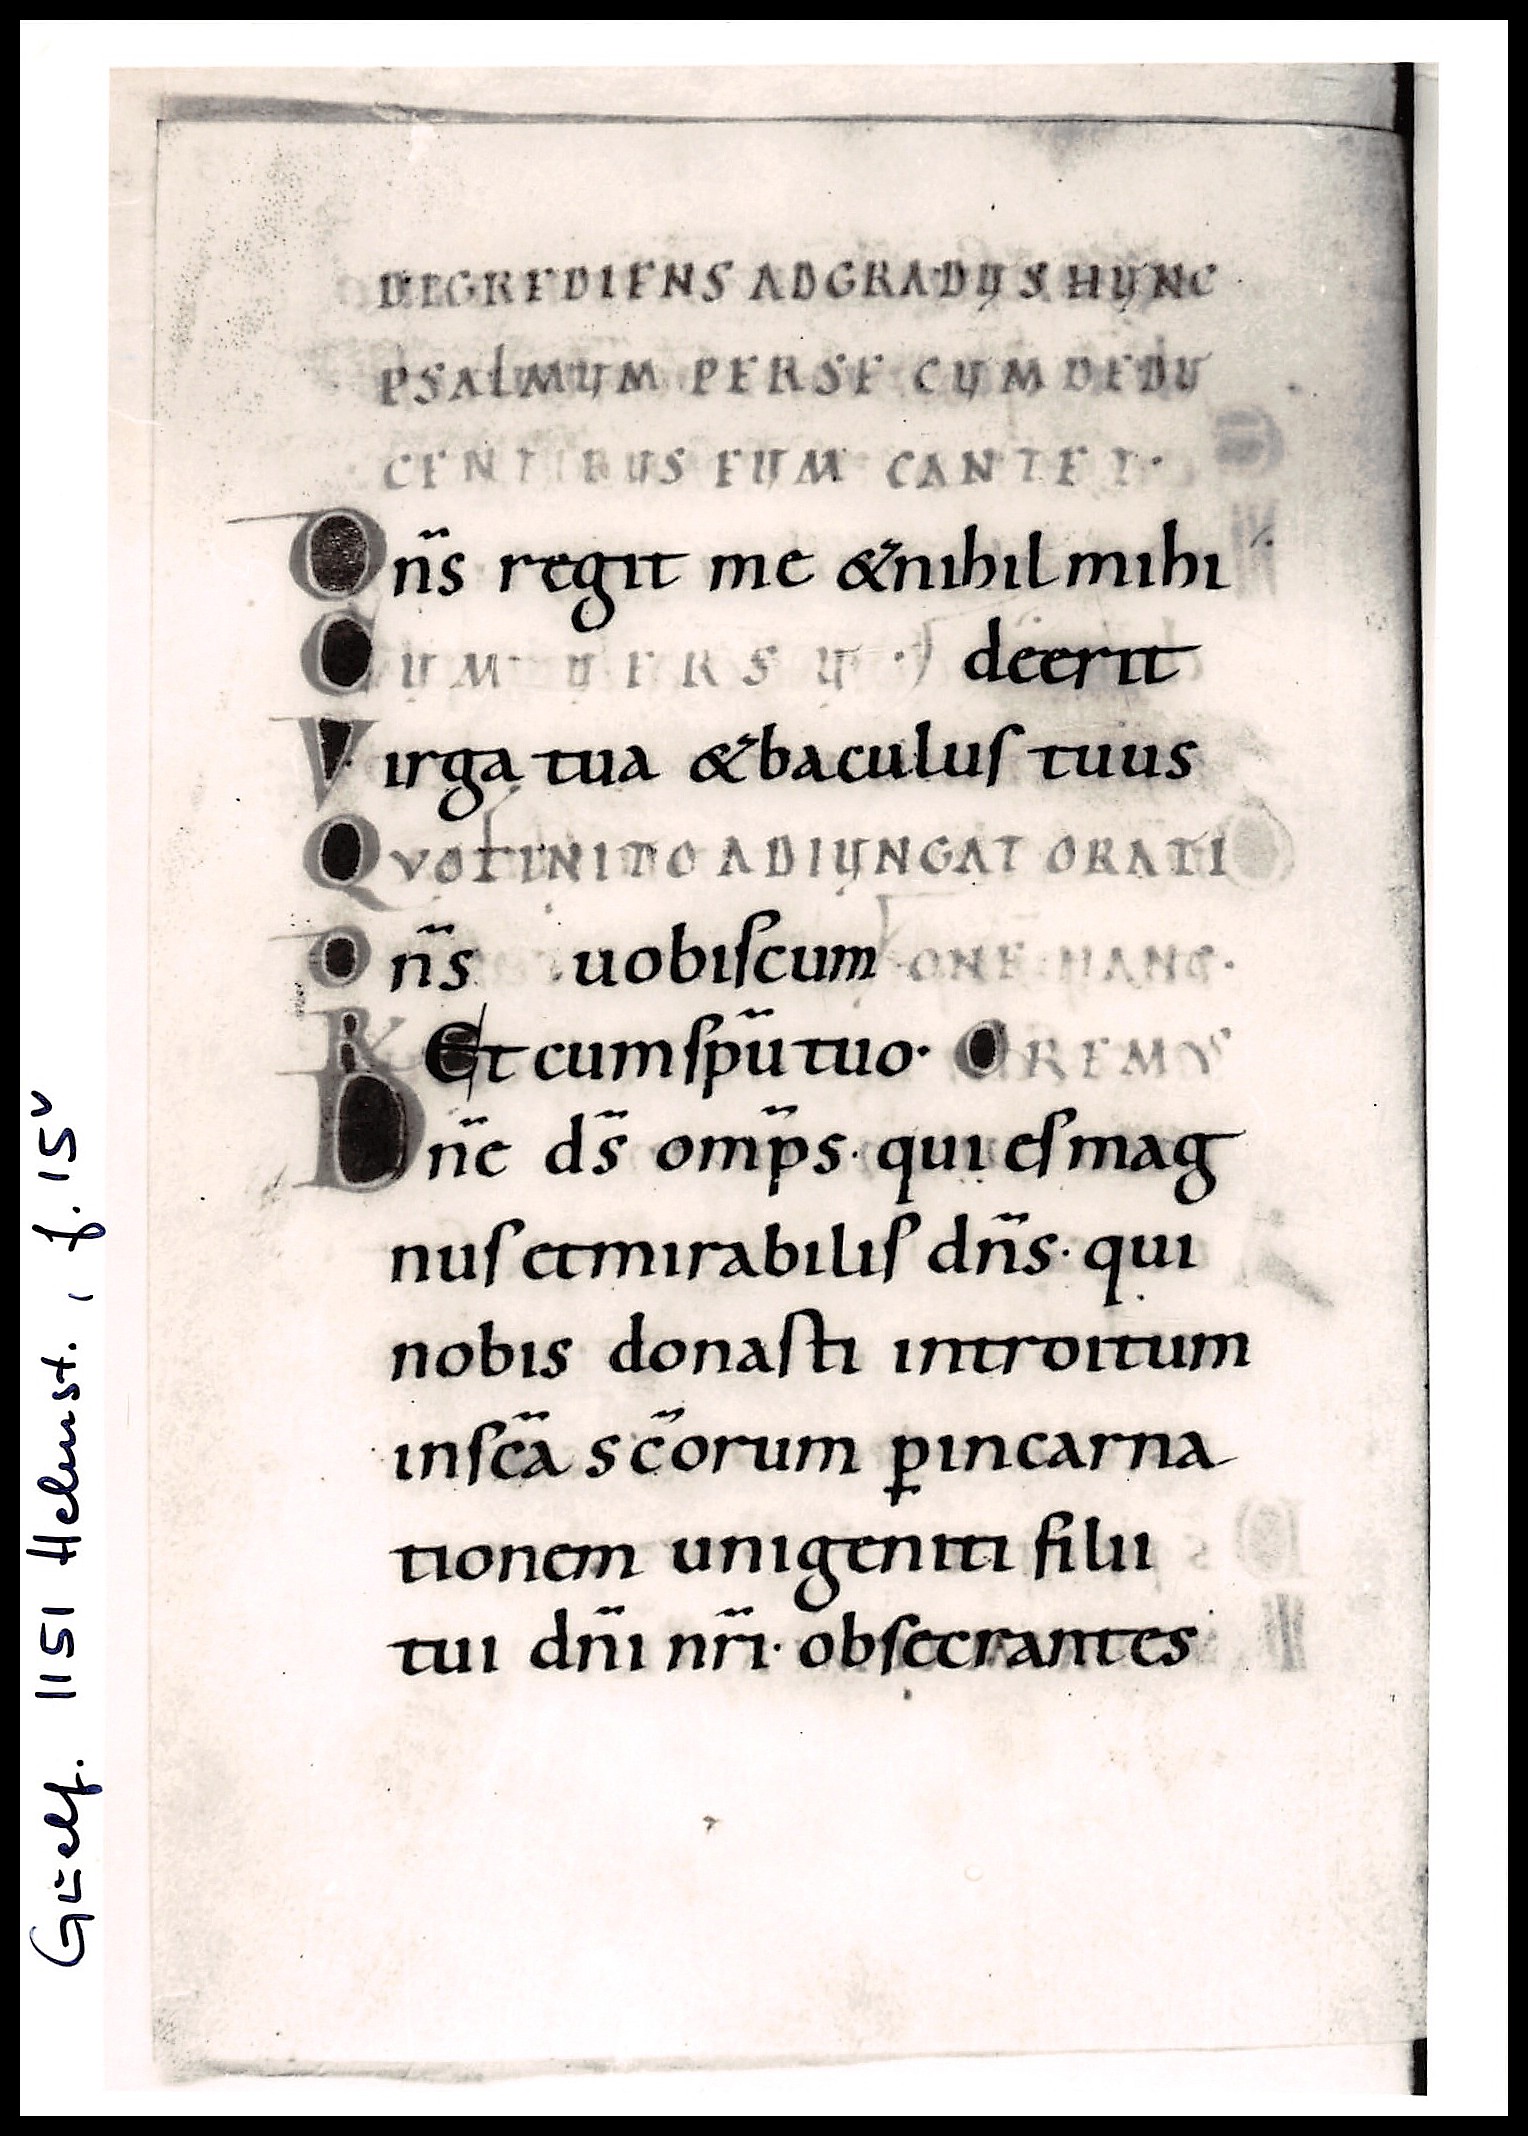 DEGREDIENS AD GRADUS HUNC
PSALMUM PER SE CUM DEDU
CENTIBUS EUM CANTET·
Dn̄s regit me & nihil mihi
CUM VERSU·) deerit
Virga tua & baculus tuus
QUO FINITO ADIUNGAT ORATI
Dn̄s uobiscum ONE HANC·
R Et cum sp̄u tuo· OREMUS
Dn̄e ds̄ omp̄s· qui es mag
nus et mirabilis dn̄s· qui
nobis donasti introitum
in sc̄a sc̄orum ꝑ incarna
tionem unigeniti filii
tui dn̄i nr̄i· obsecrantes
Guelf. 1151 Helmst., f. 15v